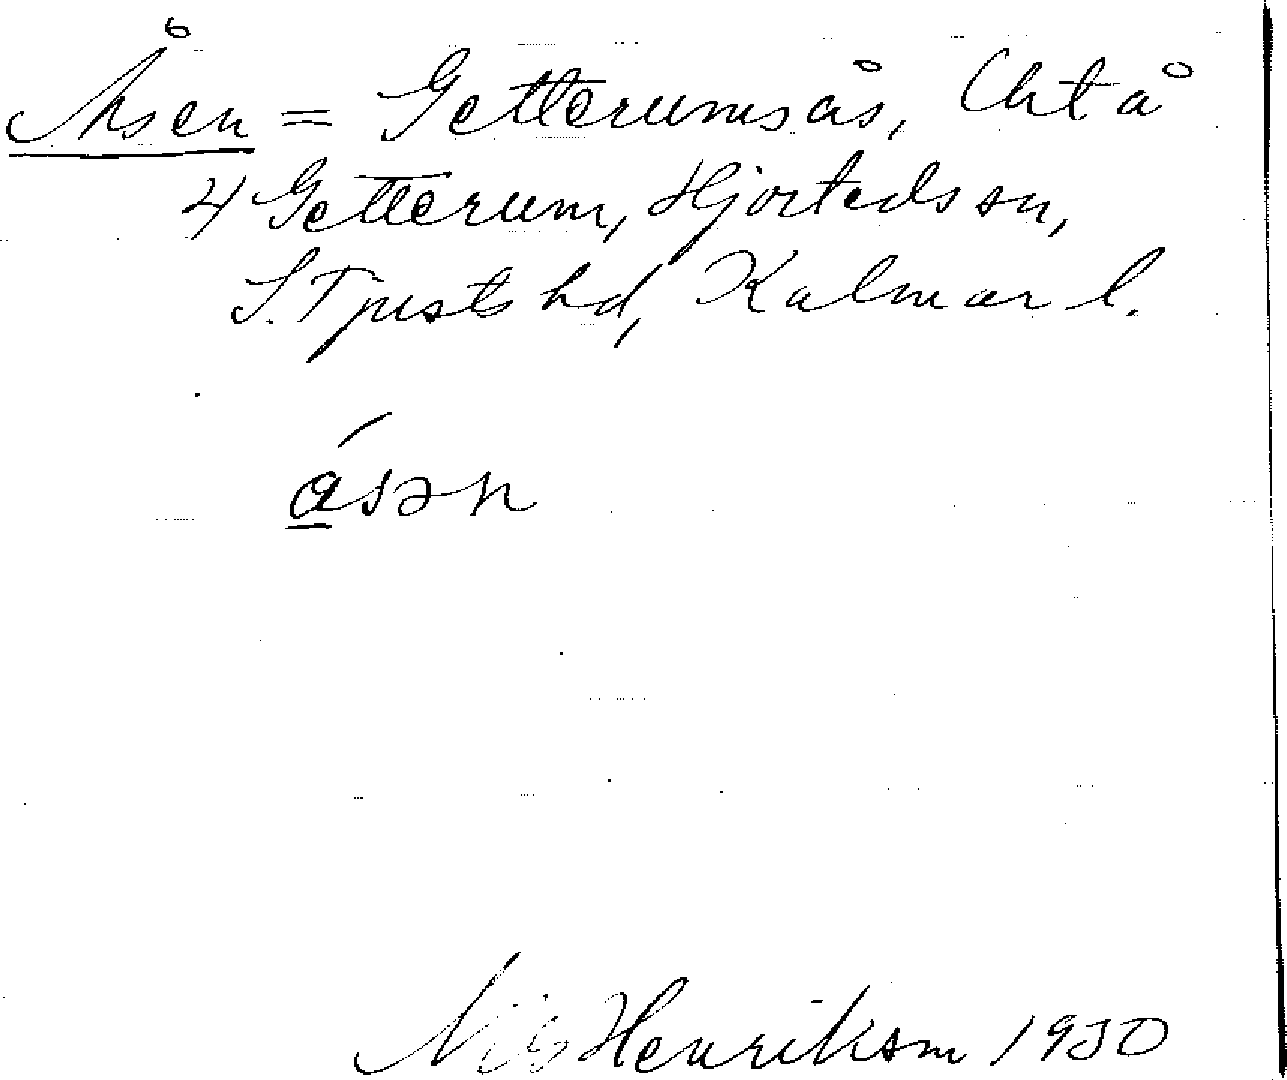 Åsen = Getterumsås, Cht å
4 Getterum, Hjorteds sn,
S. Tjusts hd, Kalmar l.
á̲sən
Nils Henriksson 1930